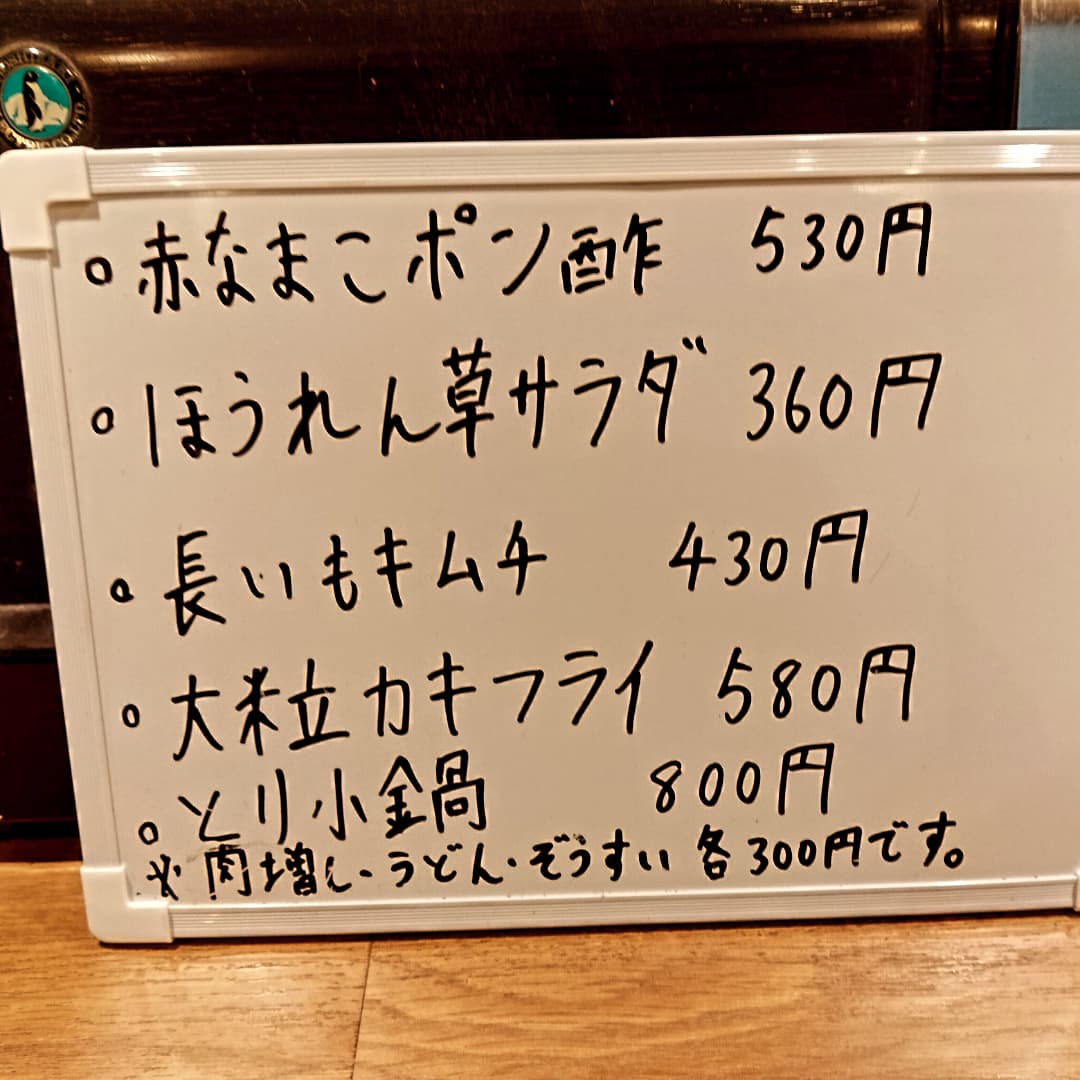 。赤なまこポン酢 530円
。ほうれん草サラダ 360円
。長いもキムチ 430円
。大粒カキフライ 580円
。とり小鍋 800円
※肉増し・うどん・ぞうすい 各300円です。